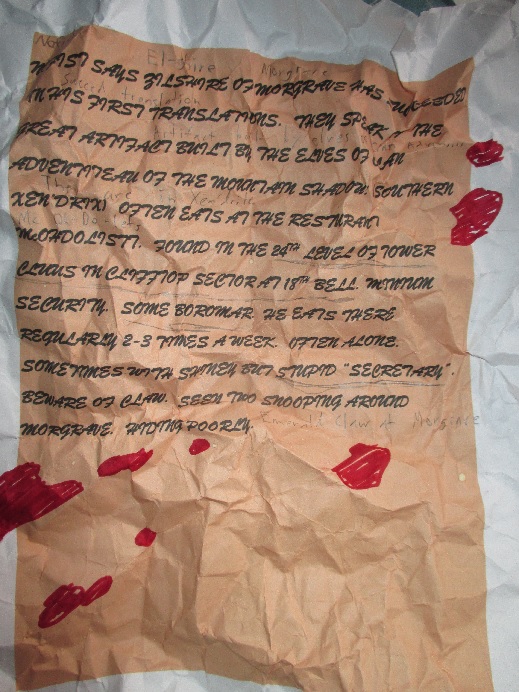 El-shire Morgrave
SAYS ZILSHIRE OF MORGRAVE HAS SUCCEEDED
Succed translation
IN HIS FIRST TRANSLATIONS. THEY SPEAK OF THE
GREAT ARTIFACT BUILT BY THE ELVES OF
ADVENTITEAU OF THE MOUNTAIN SHADOW SOUTHERN
XEN'DRIX) OFTEN EATS AT THE RESTURANT
McOHDOLISTT. FOUND IN THE 24TH LEVEL OF TOWER
CLUUS IN CLIFFTOP SECTOR AT 18TH BELL. MINIUM
SECURITY. SOME BOROMAR. HE EATS THERE
REGULARLY 2-3 TIMES A WEEK. OFTEN ALONE.
SOMETIMES WITH SHINEY BUT STUPID "SECRETARY".
BEWARE OF CLAW. SEEN TWO SNOOPING AROUND
MORGRAVE. HIDING POORLY. Emerald Claw at Morgrave